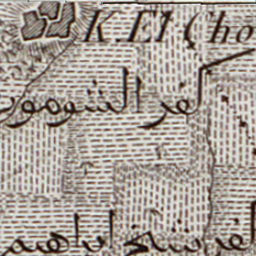 K. El Cho
كفر الشوموت
كفر شيخ ابراهيم